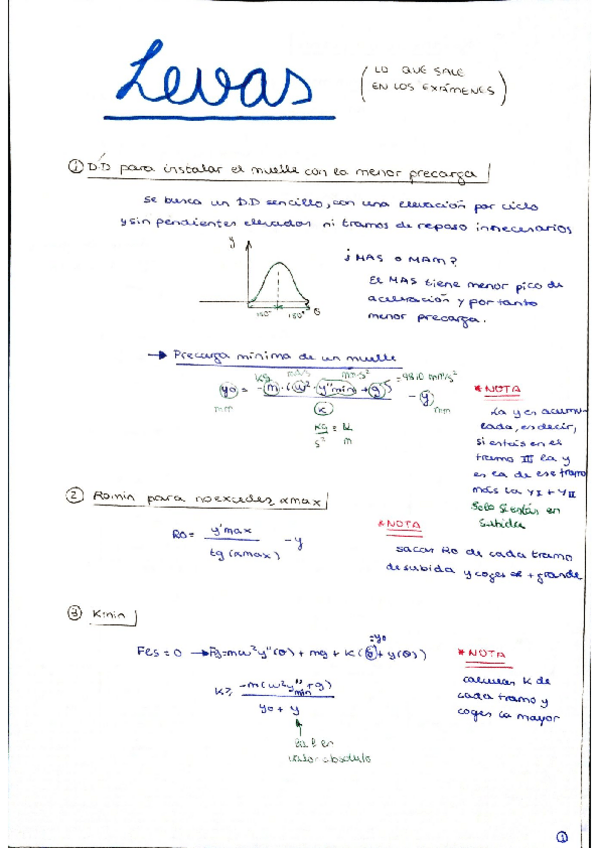 Levas
(LO QUE SALE
EN LOS EXÁMENES)
① DD para instalar el muelle con la menor precarga
Se busca un DD sencillo, con una elevación por ciclo
y sin pendientes elevados ni tramos de reposo innecesarios
y
150° 150° θ
¿MAS o MAM?
El MAS tiene menor pico de
aceleración y por tanto
menor precarga.
→ Precarga mínima de un muelle
kg mm·s² = 9810 mm/s²
y0 = -m·(ω²·y''min + g) / K - y
mm mm
kg/s² = N/m
* NOTA
La y es acumu-
lada, es decir,
si estás en el
tramo III la y
es la de ese tramo
más la yI + yII
Solo si estás en
subida
② Romin para no exceder αmax
R0 = y'max / tg(αmax) - y
* NOTA
sacar R0 de cada tramo
de subida y coges el + grande
③ Kmin
Fcs = 0 → Fg = mω²y''(θ) + mg + K(δ + y(θ))
= y0
K ≥ -m(ω²y''min + g) / y0 + y
en
valor absoluto
* NOTA
calcular K de
cada tramo y
coges la mayor
①